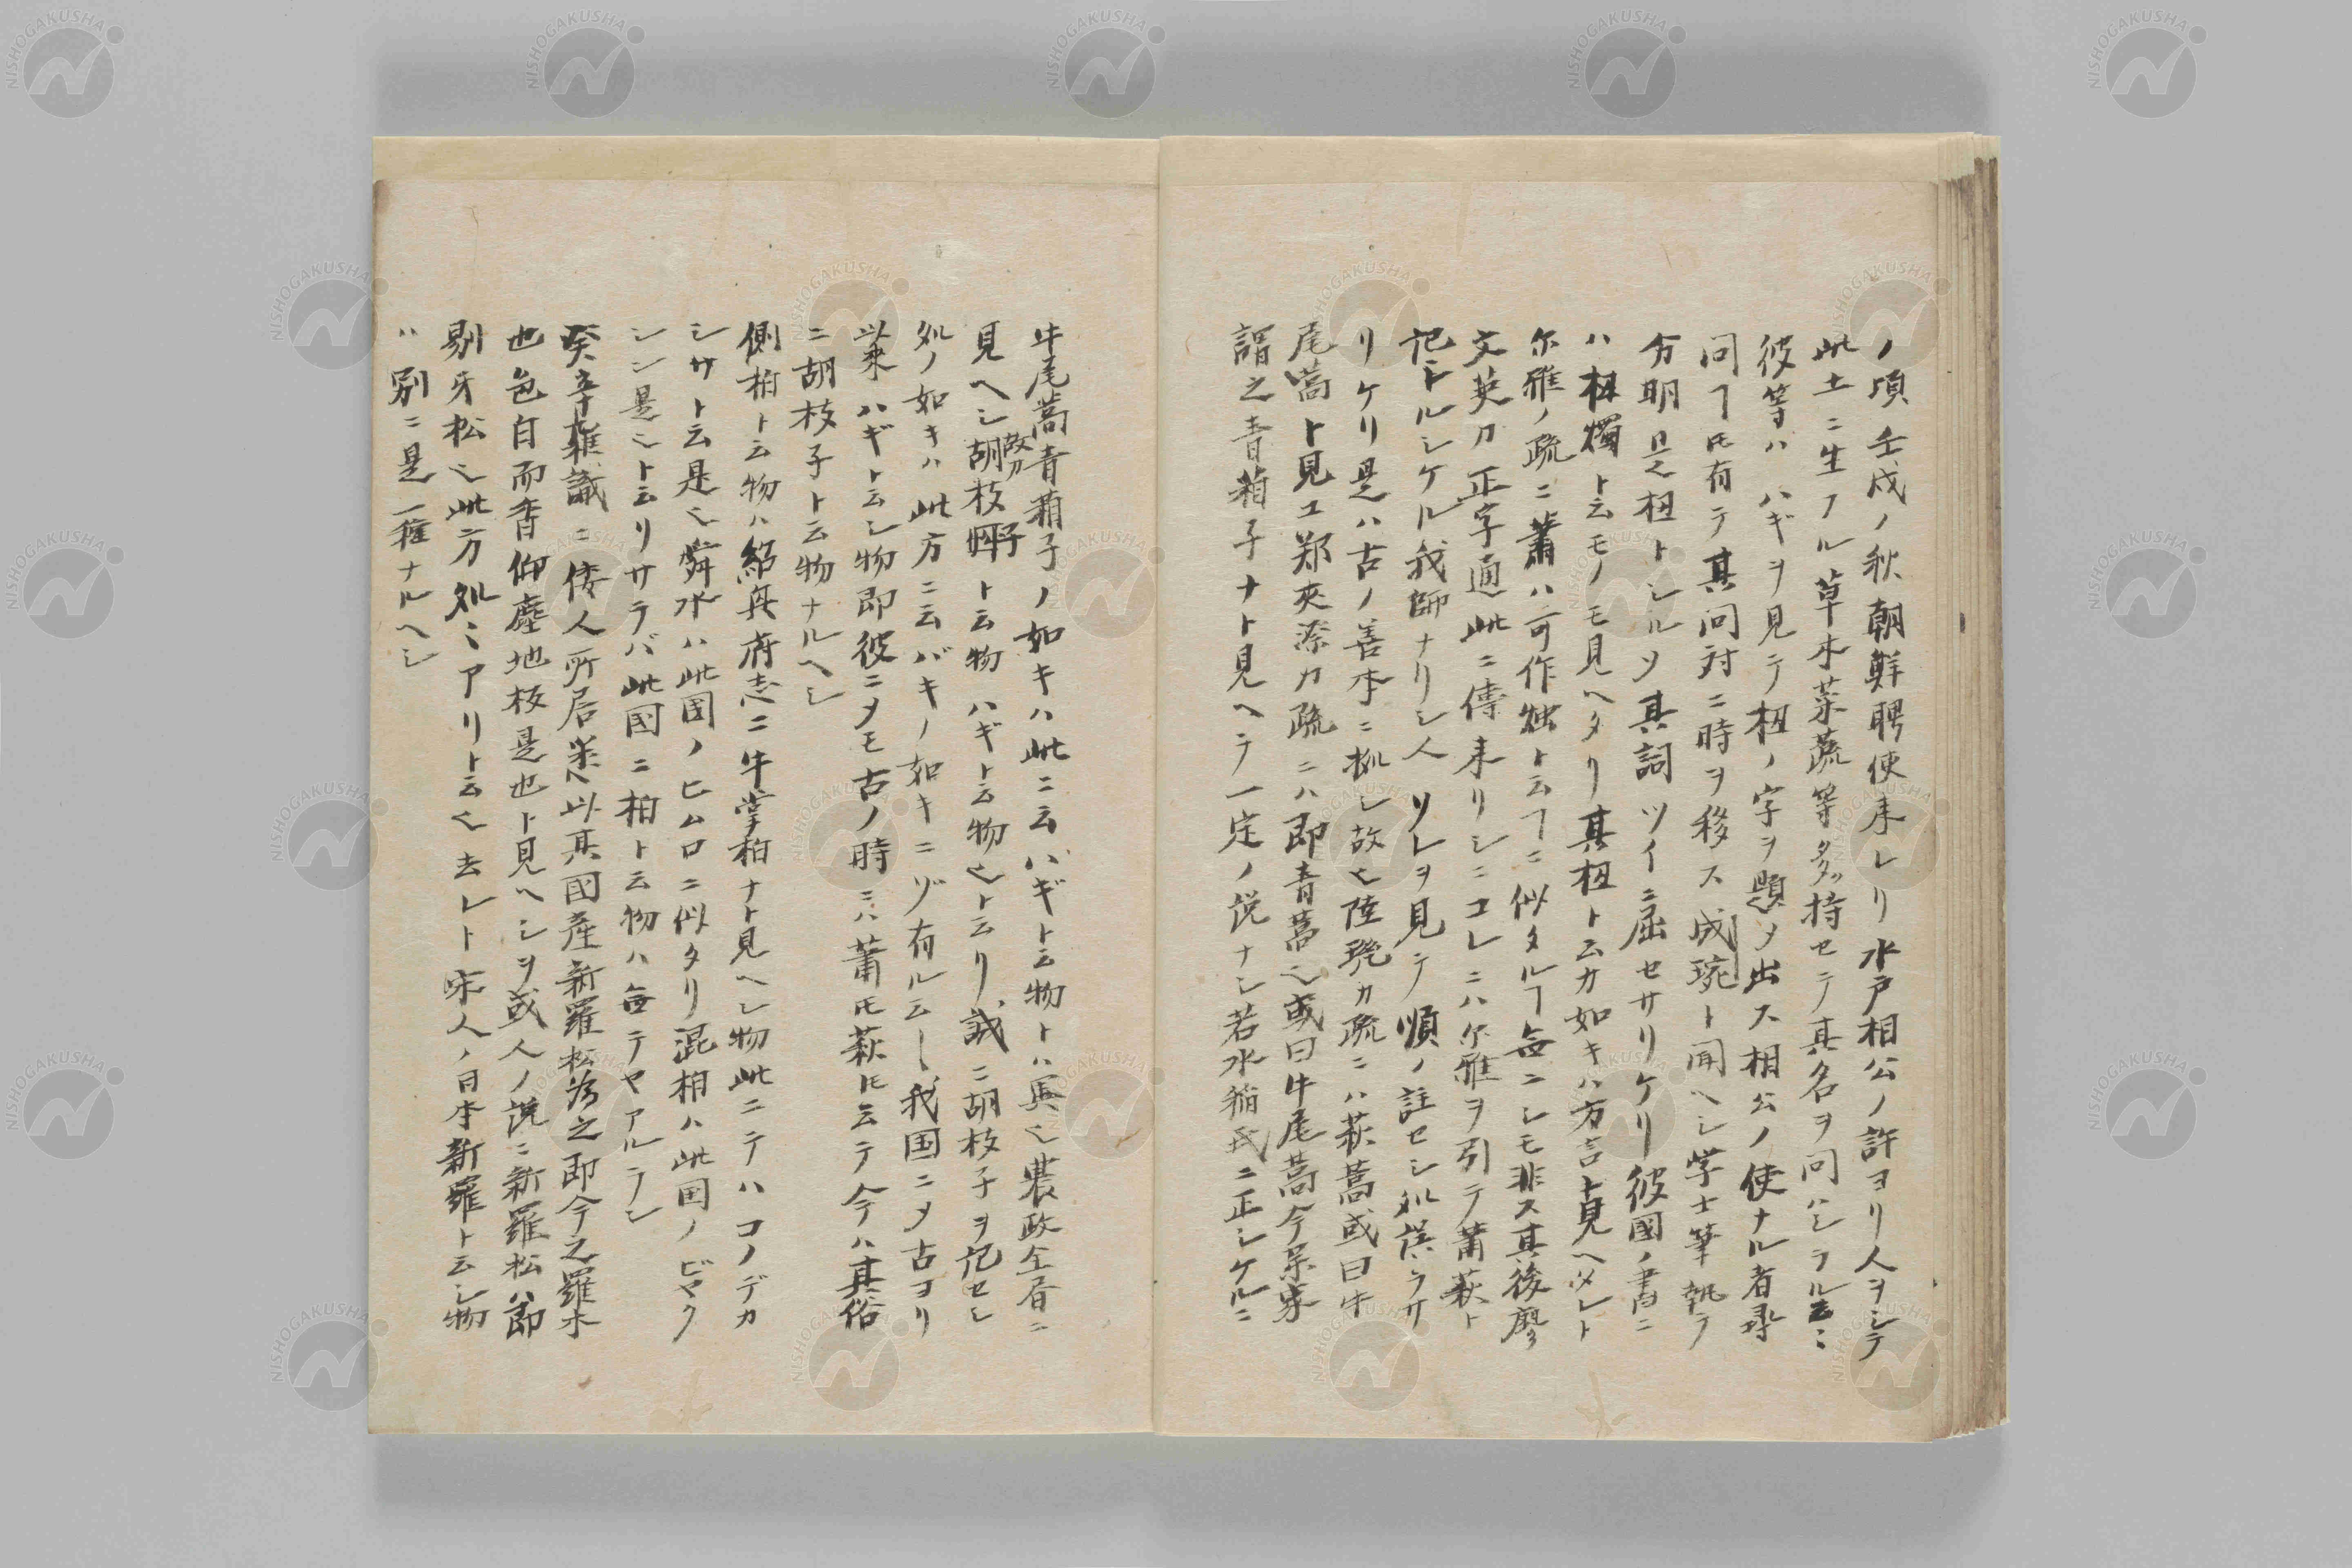 ノ頃壬戌ノ秋朝鮮聘使来レリ水戸相公ノ許ヨリ人ヲシテ
此土ニ生フル草木菜蔬等多ッ持セテ其名ヲ問ハシラル云ミ
彼等ハハギヲ見テ杻ノ字ヲ題ノ出ス相公ノ使ナル者尋
問ヿ𪜈有テ其問対ニ時ヲ移ス成琬ト聞ヘシ学士筆執テ
分明是杻トシルソ其詞ツイニ屈セサリケリ彼國ノ書ニ
ハ杻𣝅ト云モノモ見ヘタリ其杻ト云カ如キハ方言ト見ヘタレト
尓雅ノ疏ニ蕭ハ可作燭ト云ヿニ似タルヿ無ニシモ非ス其後廖
文英カ正字通此ニ傳来リシニコレニハ尓雅ヲ引テ蕭萩ト
記トルシケル我師ナリシ人ソレヲ見テ順ノ註セシ処誤ラサ
リケリ是ハ古ノ善本ニ拠シ故也陸璣カ疏ニハ萩蒿或曰牛
尾蒿ト見ユ郑夾漈カ疏ニハ即青蒿也或曰牛尾蒿今
謂之青葙子ナト見ヘテ一定ノ説ナシ若水稲氏ニ正シケルニ
牛尾蒿青葙子ノ如キハ此ニ云ハギト云物トハ異也農政全書ニ
見ヘシ胡枝子ト云物ハギト云物也ト云リ誠ニ胡枝子ヲ記セシ
処ノ如キハ此方ニ云バキノ如キニゾ有ル云し我国ニメ古ヨリ
以来ハギト云シ物即彼ニメモ古ノ時ニハ蕭𪜈萩𪜈云テ今ハ其俗
ニ胡枝子ト云物ナルヘシ
側柏ト云物ハ紹興府志ニ牛掌柏ナト見ヘシ物此ニテハコノデカ
シサト云是也舜水ハ此国ノヒムロニ似タリ混柏ハ此国ノビヤク
シン是也ト云リサラバ此国ニ柏ト云物ハ無テヤアルラン
癸辛雜識ニ倭人所居悉以其國産新羅松為之即今之羅木
也色白而香仰塵地板是也ト見ヘシヲ或人ノ説ニ新羅松ハ即
剔牙松也此方処ミアリト云也去レト宋人ノ日本新羅ト云シ物
ハ別ニ是一種ナルヘシ